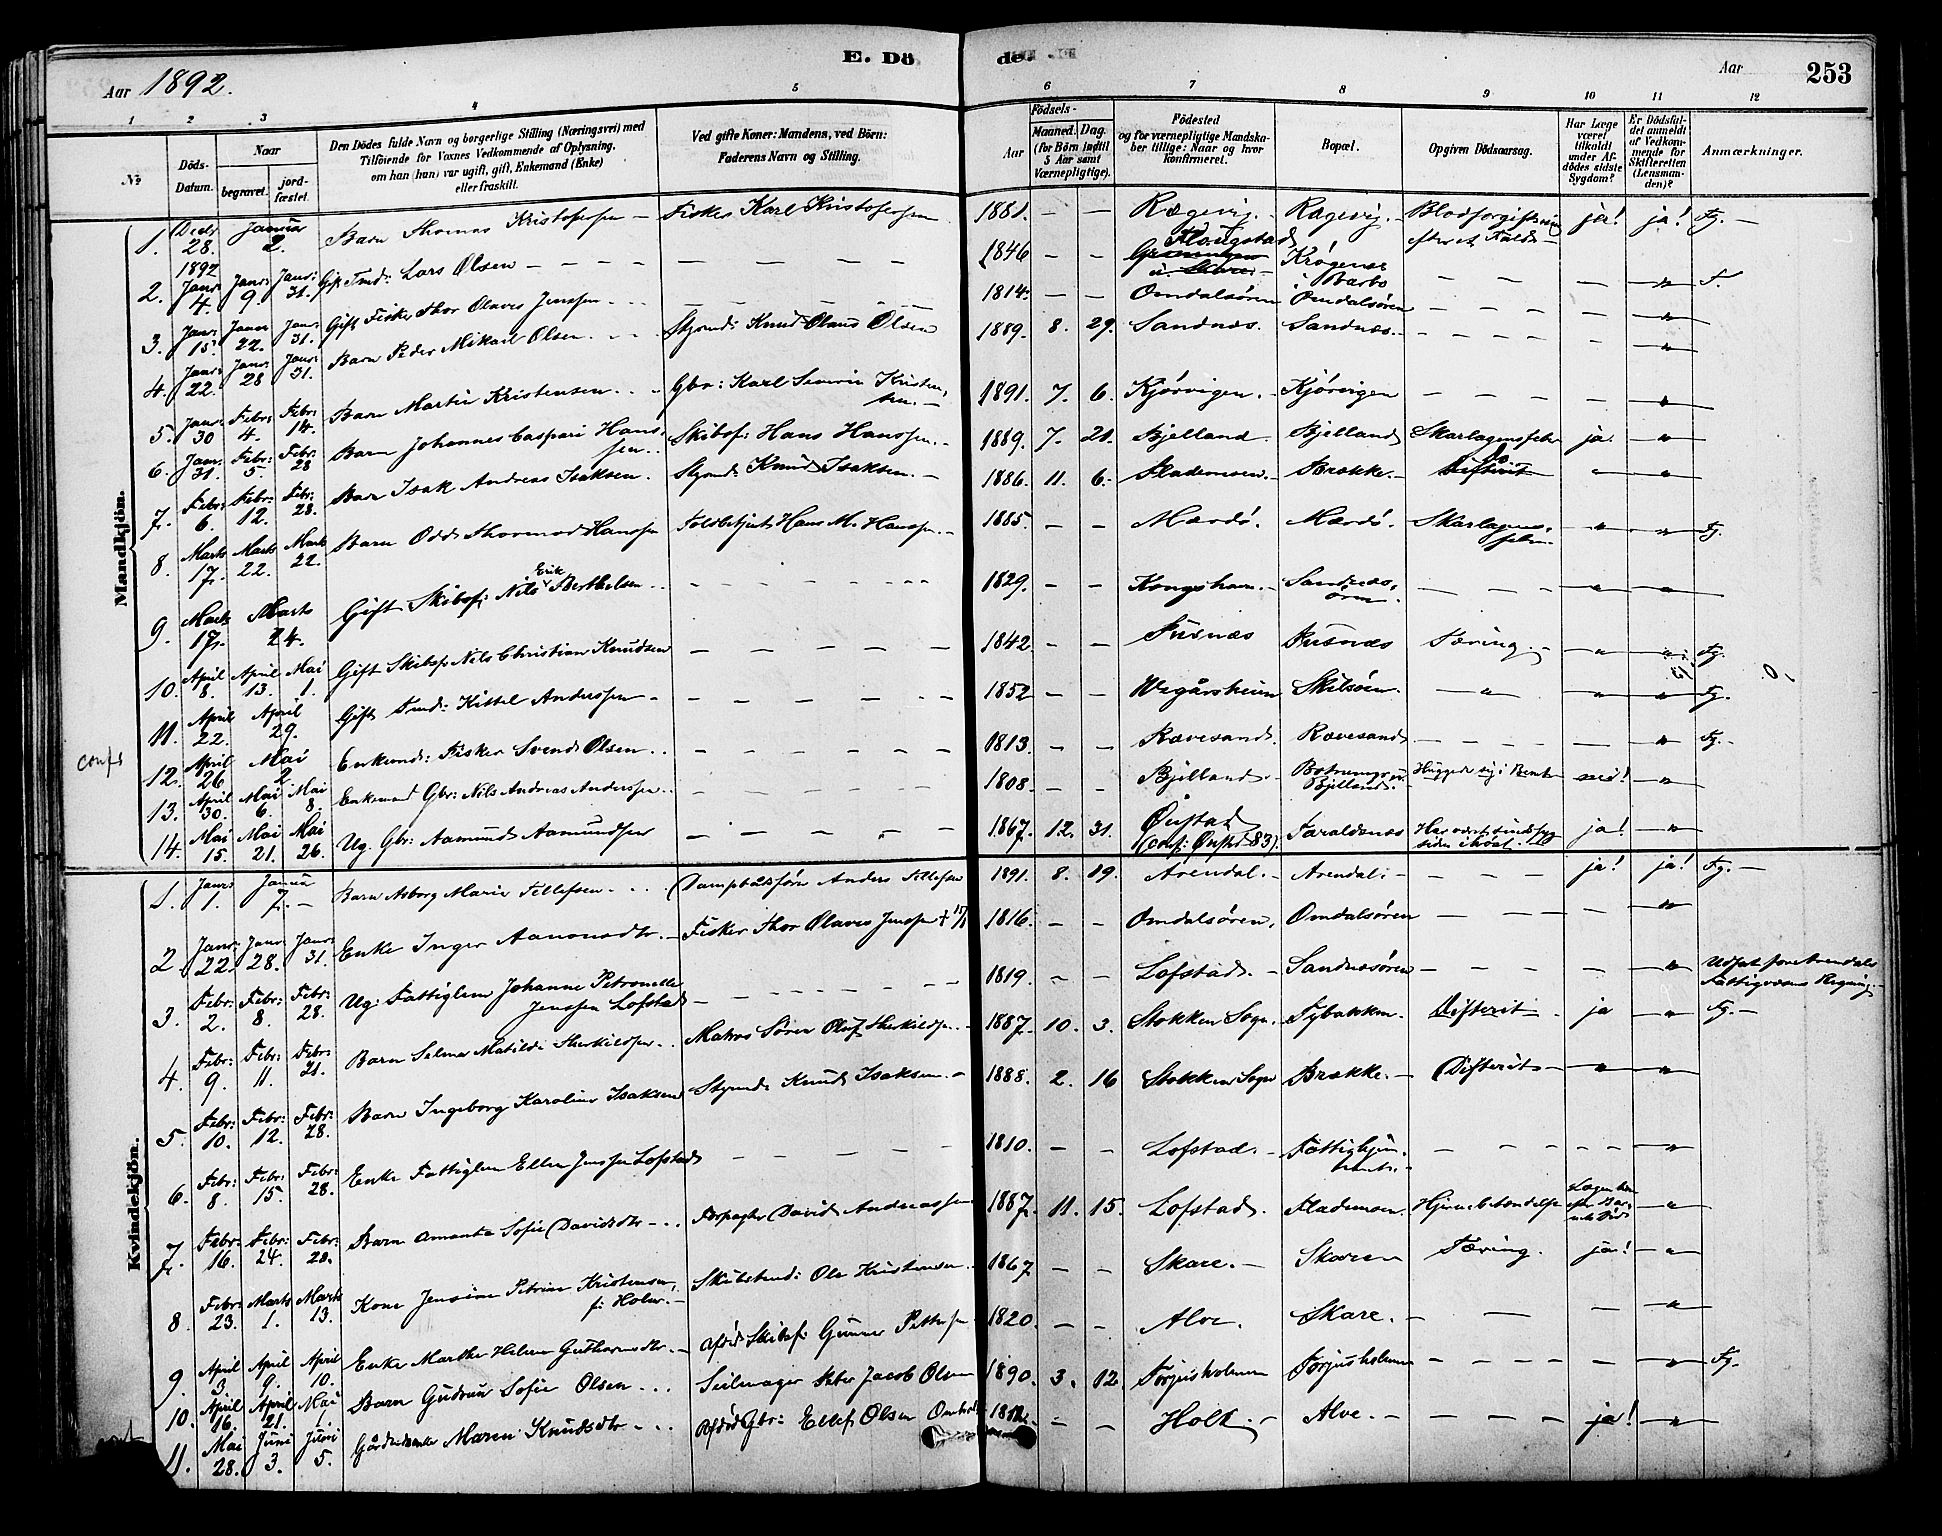 E. Dö
de.
Aar 1892.
Aar
253
1 2 3 4 5 6 7 8 9 10 11 12
No
Döds-Datum.
Naar
begravet.
jord-fæstet.
Den Dödes fulde Navn og borgerlige Stilling (Næringsvei) med
Tilföiende for Voxnes Vedkommende af Oplysning,
om han (hun) var ugift, gift, Enkemand (Enke)
eller fraskilt.
Ved gifte Koner: Mandens, ved Börn:
Faderens Navn og Stilling.
Födsels-
Aar
Maaned. Dag.
(for Börn indtil
5 Aar samt
Værnepligtige).
Födested
og for værnepligtige Mandska-
ber tillige: Naar og hvor
konfirmeret.
Bopæl.
Opgiven Dödsaarsag.
Har Læge
været
tilkaldt
under Af-
dödes sidste
Sygdom?
Er Dödsfal-
det anmeldt
af Vedkom-
mende for
Skifteretten
(Lensman-
den)?
Anmærkninger.
Mandkjön.
1. Decbr 28. Januar 2. Barn Thomas Kristofersen — Fisker Karl Kristofersen 1881. — — Rægevig. — Rægevig. — Blodforgiftning efter et Fald — ja! ja! Fg. —
1892
2. Janr 4. Janr: 9. Janr: 31. Gift Tmd: Lars Olsen — — — — 1846 — — Flougstad Krøgenes i Barbo — — — " — F.
3. Janr: 15. Januar 22. Jan: 31. Gift Fisker Thor Olaves Jenssen — — — 1814. — — Omdalsören Omdalsören — — — "
4. Janr: 22. Janr: 28 Janr: 31. Barn Peder Mikael Olsen. — Styrmd: Knud Olaus Olsen 1889. 8. 29. Sandnæs. Sandnæs. — — — "
5. Janr: 30 Febr: 4. Febr: 14. Barn Martin Kristensen — Gbr: Karl Severin Kristensen. — 1891. 7. 6. Kjörvigen. — Kjörvigen — — — "
6. Janr: 31. Febr: 5 Febr: 28 Barn Johannes Caspari Hanssen — Skibsf: Hans Hanssen. — 1889. 7. 21. Bjelland. Bjelland Skarlagensfeber ja. "
7. Febr: 6. Febr: 12. Febr: 28. Barn Isak Andreas Isaksen. Styrmd: Knud Isaksen. — 1886. 11. 6. Flademoen. — Brække. — " "
8. Marts 17. Marts 22. Marts 22. Barn Odd Thormod Hanssen Toldbetjent Hans M. Hanssen. — 1885. — — Mærdö. Mærdö. Skarlagens-feber — " " Fg.
9. Marts 17. Marts 24. Gift Skibsf: Nils Erik Berthelsen — — — 1829. — — Kongshavn. — Sandnæs-ören — — " "
10. April 8. April 13. Mai 1. Gift Skibsf: Nils Christian Knudsen — — — 1842 — — Pusnæs Pusnæs Tæring. — " " Fg.
11. April 22. April 29. Gift Tmd: Kittel Anderssen — — — 1852 — — Vegårsheien Skilsöen. " " " Fg.
12. April 26 Mai 2. Enkemd: Fisker Svend Olsen — — — 1813. — — Rævesand. Rævesand — — " Fg. —
13. April 30. Mai 6. Mai 8. Enkemand Gbr: Nils Andreas Anderssen — — 1808. — — Bjelland. — Bjelland. — nei! "
14. Mai 15. Mai 21. Mai 26. Ug. Gbr: Aamund Aamundsen — — — 1867. 12. 31. Öiestad (conf: Öiestd 83). Taraldsnæs Har været sindssyg siden i høst. ja! "
Kvindekjön.
1. Janr: 1. Januar 7. — Barn Asborg Marie Tellefsen — Dampbaadsförer Anders Tellefsen 1891. 8. 19. Arendal. — Arendal. — — — ja! ja! Fg. —
2. Janr: 22. Janr: 28. Janr: 31. Enke Inger Aanonsdtr. — Fisker Thor Olaves Jenssen 1816. — — Omdalsören, Omdalsören — — — "
3. Febr: 2. Febr: 8. Febr: 28. Ug: Fattiglem Johanne Petronelle Jenssen Lofstad — — — 1819. — — Lofstad. — Sandnæsören — — — " Udsat for Arendals Fattigvæsens Regning. —
4. Febr: 9. Febr: 11. Febr: 21. Barn Selma Matilde Therkildsen. — Matros Sören Oluf Therkildsen. 1887. 10. 3. Stokken Sogn. Tybakken. Difterit — ja " Fg. —
5. Febr: 10. Febr: 12. Febr: 28. Barn Ingeborg Karoline Isaksen Styrmd: Knud Isaksen. — 1888. 2. 16 Stokken Sogn Brække. — Difterit — " "
6. Febr: 8. Febr: 15. Febr: 28. Enke Fattiglem Ellen Jenssen Lofstad — — — 1810. — — Lofstad. — — — — "
7. Febr: 16. Febr: 24. Febr: 28. Barn Amanda Sofie Davidsdtr — Forpagter David Andreassen 1887. 11. 15. Lofstad. Flademoen. Hjernebetændelse "
8. Febr: 23. Marts 1. Marts 13. Kone Jensine Petrine Kristensen, f: Holm. — Ole Kristensen. 1867 — — Skare. — Skaren Tæring. ja! "
9. April 3. April 9. April 10. Enke Marthe Helene Guthormsdtr. — Afdöd Skibsf: Gunner Pettersen 1820. — — Alve. Skare. — — — "
10. April 16. April 21. Mai 1. Barn Gudrun Sofie Olsen — Seilmager Peter Jacob Olsen 1890. 3. 12. Torjusholmen Torjusholmen — — — " Fg.
11. Mai 28. Juni 3. Juni 5. Maren Knudsdtr — Afdöd Gbr: Ellef Olsen — — Holt. — Alve. — — ja! "